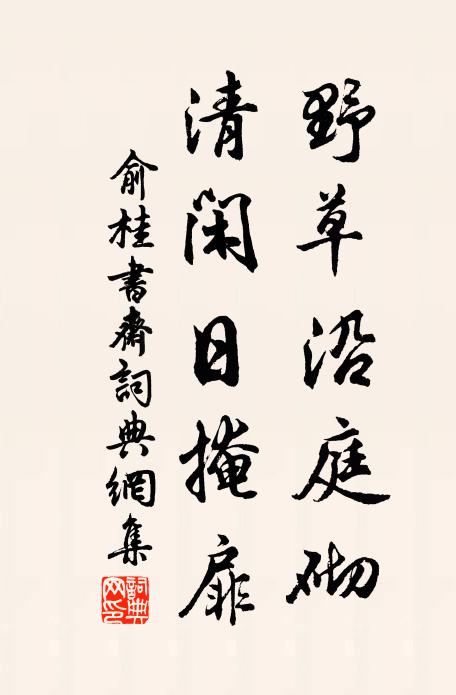 野草沿庭砌
清閑日掩扉
俞桂書齋詞典網集
詞典網印